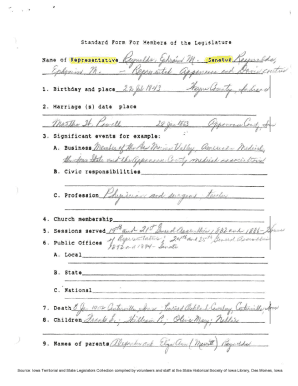 Standard Form For Members of the Legislature
Name of Representative Reynolds, Ephraim M. Senator Reynolds,
Ephraim M. - Represented Appanoose and Davis counties
1. Birthday and place 22 July 1843
2. Marriage (s) date place
Martha H. Powell 1873 Appanoose County,
3. Significant events for example:
A. Business Member of the Des Moines Valley American Medical,
the Iowa State and the Appanoose County medical associations
B. Civic responsibilities
C. Profession Physician and surgeon,
4. Church membership
5. Sessions served 19th and 21st General Assemblies, 1882 and 1886 - House
6. Public Offices of Representatives; 24th and 25th General Assemblies
1892 and 1894 - Senate
A. Local
B. State
C. National
7. Death Centerville, Iowa Cemetery, Centerville, Iowa
8. Children Frank S.; William P.; Nellie
9. Names of parents Alexander and Elizabeth Reynolds
Source: Iowa Territorial and State Legislators Collection compiled by volunteers and staff at the State Historical Society of Iowa Library, Des Moines, Iowa.